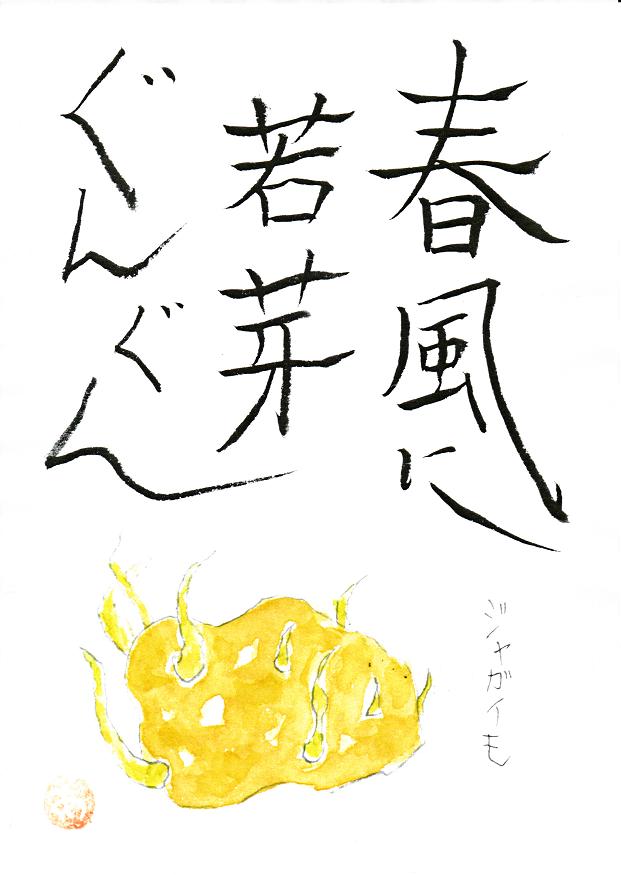 春風に
若芽
ぐんぐん
ジャガイモ